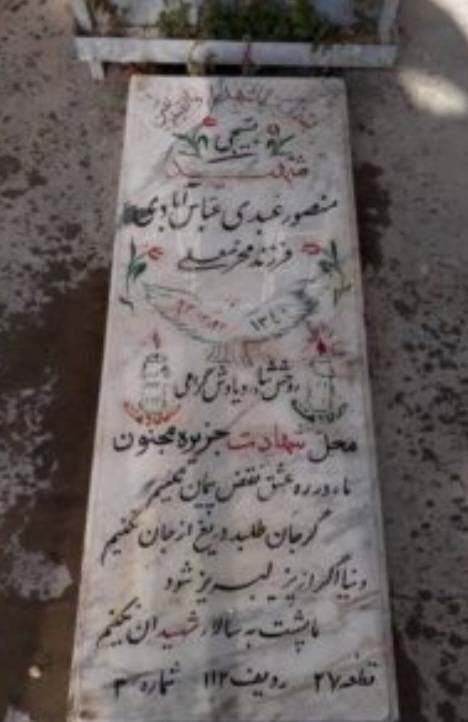 بسیجی
شهید
منصور عبدی عباس آبادی
فرزند محمدعلی
۱۳۴۰
روحش شاد و یادش گرامی
محل شهادت جزیره مجنون
ما در ره عشق نقض پیمان نکنیم
گر جان طلبد دریغ از جان نکنیم
دنیا اگر از یزید لبریز شود
ما پشت به سالار شهیدان نکنیم
قطعه ۲۷ ردیف ۱۱۲ شماره ۳